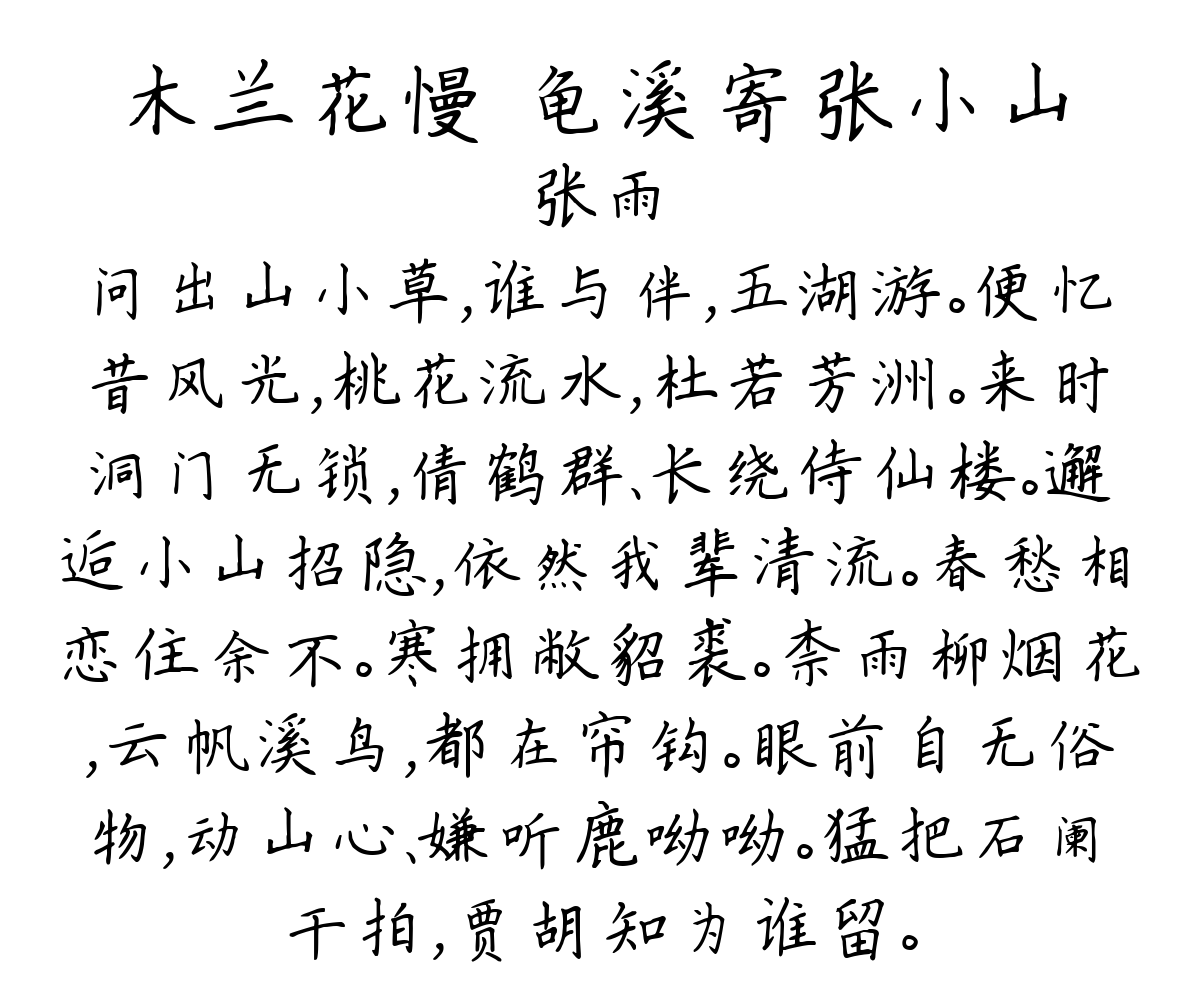 木兰花慢 龟溪寄张小山
张雨
问出山小草,谁与伴,五湖游。便忆
昔风光,桃花流水,杜若芳洲。来时
洞门无锁,倩鹤群、长绕侍仙楼。邂
逅小山招隐,依然我辈清流。春愁相
恋住余不。寒拥敝貂裘。柰雨柳烟花
,云帆溪鸟,都在帘钩。眼前自无俗
物,动山心、嫌听鹿呦呦。猛把石阑
干拍,贾胡知为谁留。